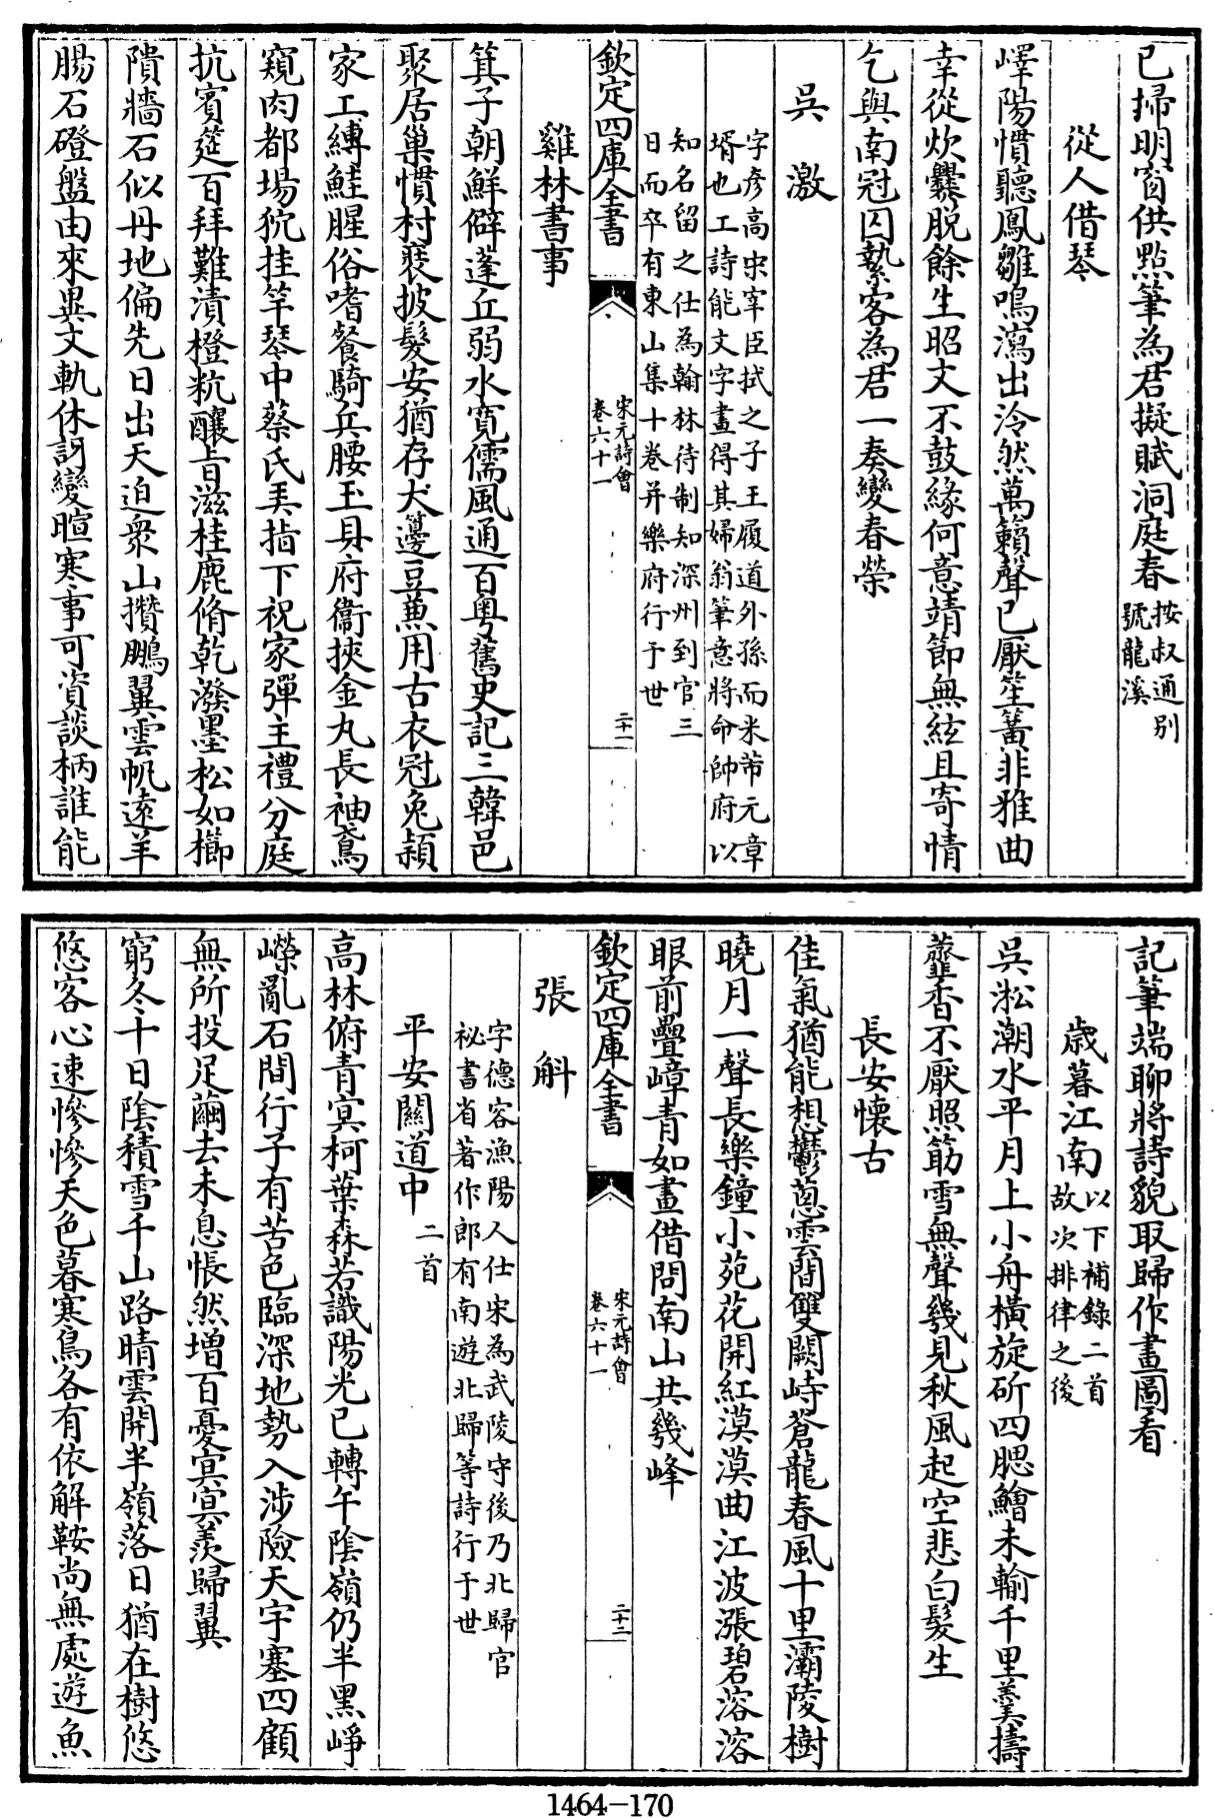 已掃明窗供㸃筆為君擬賦洞庭春按叔通别
號龍溪
從人借琴
嶧陽慣聽鳳雛鳴瀉出泠然萬籟聲已厭笙簧非雅曲
幸從炊爨脱餘生昭文不鼓緣何意靖節無絃且寄情
乞與南冠囚縶客為君一奏變春榮
吳激
字彦高宋宰臣拭之子王履道外孫而米芾元章
壻也工詩能文字畫得其婦翁筆意將命帥府以
知名留之仕為翰林待制知深州到官三
日而卒有東山集十卷并樂府行于世
欽定四庫全書
宋元詩會
卷六十一
二十一
雞林書事
箕子朝鮮僻蓬丘弱水寛儒風通百粤舊史記三韓邑
聚居巢慣村裹披髮安猶存犬籩豆兼用古衣冠兔頴
家工縛鮭腥俗嗜餐騎兵腰玉具府衞挾金丸長袖鳶
窺肉都場狖挂竿琴中蔡氏弄指下祝家彈主禮分庭
抗賓筵百拜難漬橙粔釀旨滋桂鹿脩乾潑墨松如櫛
隤牆石似丹地偏先日出天迫衆山攢鵬翼雲帆逺羊
腸石磴盤由來異文軌休訝變暄寒事可資談柄誰能
記筆端聊將詩貌取歸作畫圖看
歲暮江南以下補錄二首
故次排律之後
吳淞潮水平月上小舟横旋斫四腮鱠未輸千里羮擣
虀香不厭照筯雪無聲幾見秋風起空悲白髮生
長安懷古
佳氣猶能想鬱葱雲間雙闕峙蒼龍春風十里灞陵樹
曉月一聲長樂鐘小苑花開紅漠漠曲江波漲碧溶溶
眼前疊嶂青如畫借問南山共幾峰
欽定四庫全書
宋元詩會
卷六十一
二十二
張斛
字德容漁陽人仕宋為武陵守後乃北歸官
祕書省著作郎有南遊北歸等詩行于世
平安關道中二首
高林俯青㝠柯葉森若識陽光已轉午陰嶺仍半黑崢
嶸亂石間行子有苦色臨深地勢入涉險天宇塞四顧
無所投足繭去未息悵然增百憂㝠㝠羨歸翼
窮冬十日陰積雪千山路晴雲開半嶺落日猶在樹悠
悠客心速慘慘天色暮寒鳥各有依解鞍尚無處遊魚
1464-170